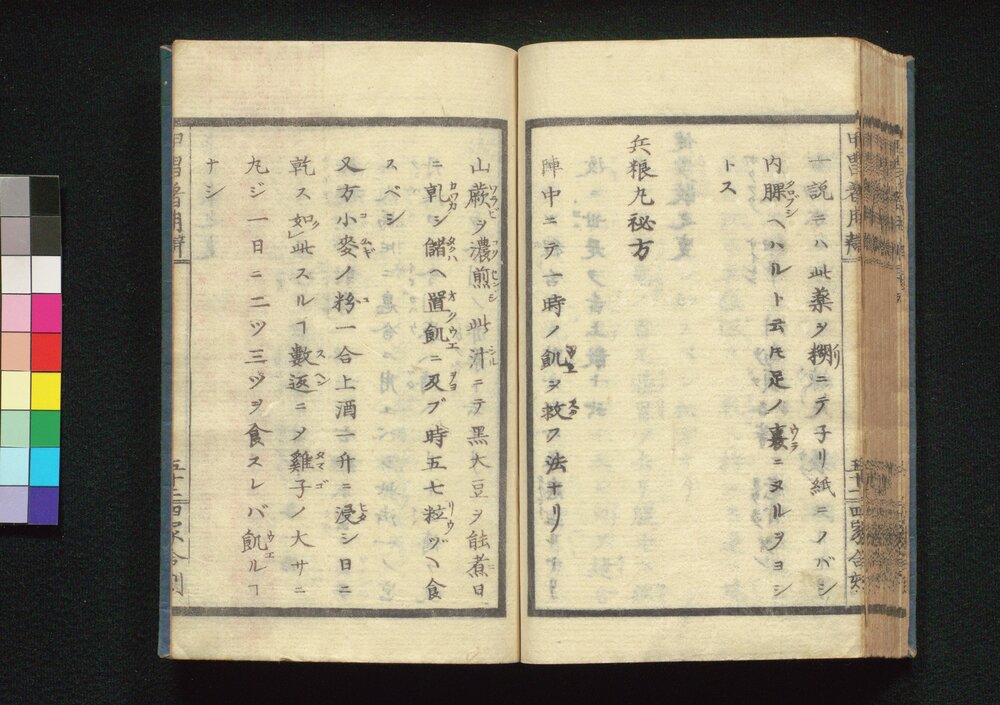 一説ニハ此薬ヲ糊ニテ子リ紙ニノバシ
内踝ヘハルト云𪜈足ノ裏ニヌルヲヨシ
トス
兵粮丸秘方
陣中ニテ一時ノ飢ヲ救フ法ナリ
山蕨ヲ濃煎ノ此汁ニテ黒大豆ヲ能煮日
ニ乾シ儲ヘ置飢ニ及ブ時五七粒ヅヽ食
スベシ
又方小麥ノ粉一合上酒一升ニ浸シ日ニ
乾ス如此スルヿ數返ニメ雞子ノ大サニ
丸ジ一日ニ二ツ三ツヲ食スレバ飢ルヿ
ナシ